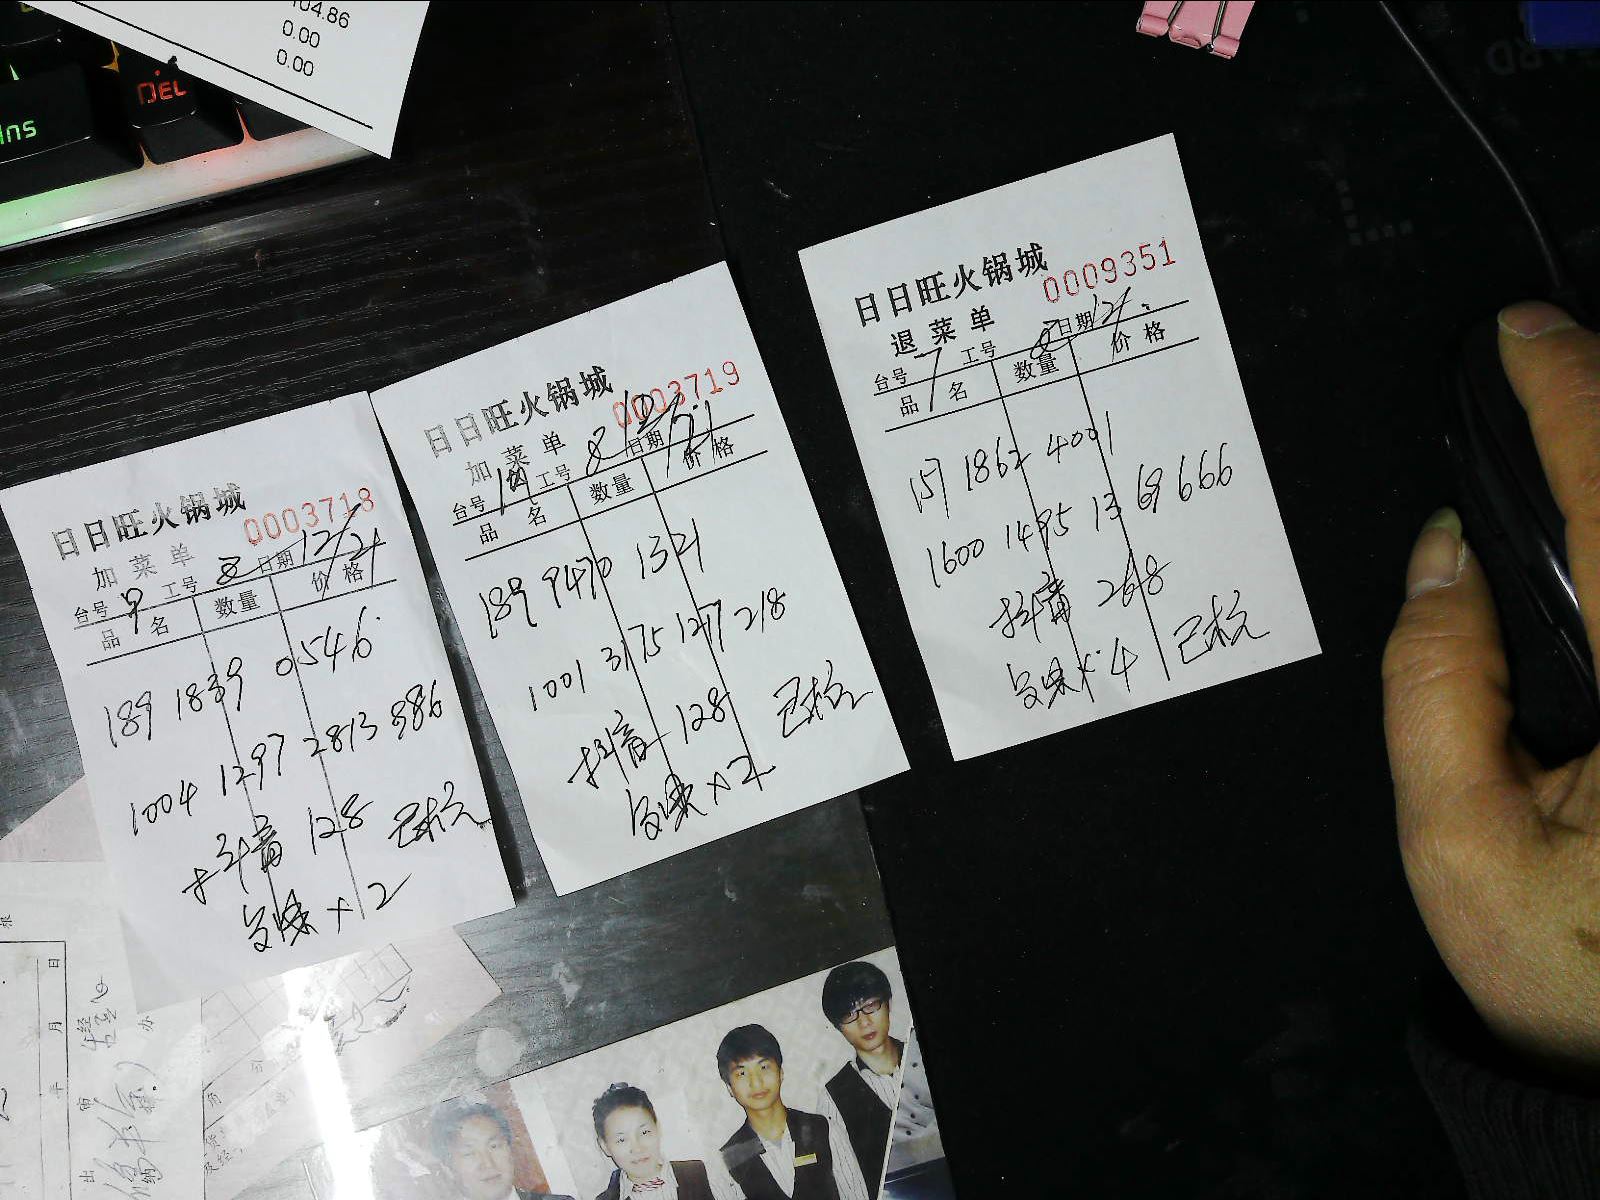 104.86
0.00
0.00
DEL
Ins
日日旺火锅城
0003718
加菜单
台号 9 工号 8 日期 12/21
品名 数量 价格
189 1839 0546
1004 1297 2813 886
抖音 128 已核
台味×2
日日旺火锅城
0003719
加菜单
台号 工号 8 日期 12/21
品名 数量 价格
189 9470 1321
1001 3175 1277 218
抖音 128 已核
×2
日日旺火锅城
0009351
退菜单
台号 7 工号 8 日期 12/
品名 数量 价格
157 1862 4001
1600 1495 13 69 666
抖音 268
×4 已核